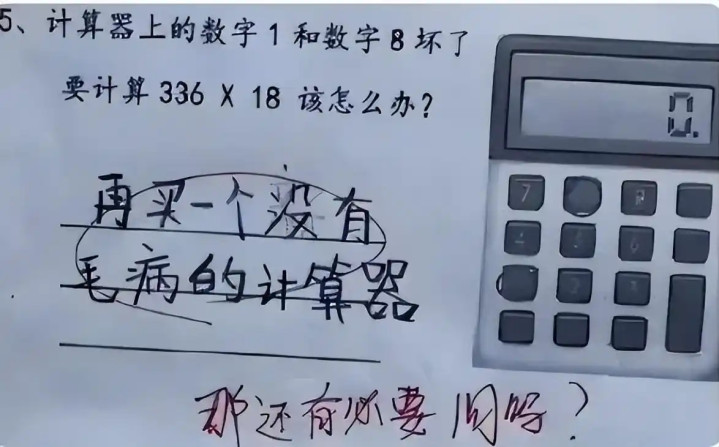 5、计算器上的数字1和数字8坏了
要计算336 X 18 该怎么办?
再买一个没有
毛病的计算器
那还有必要问吗?
0.
7